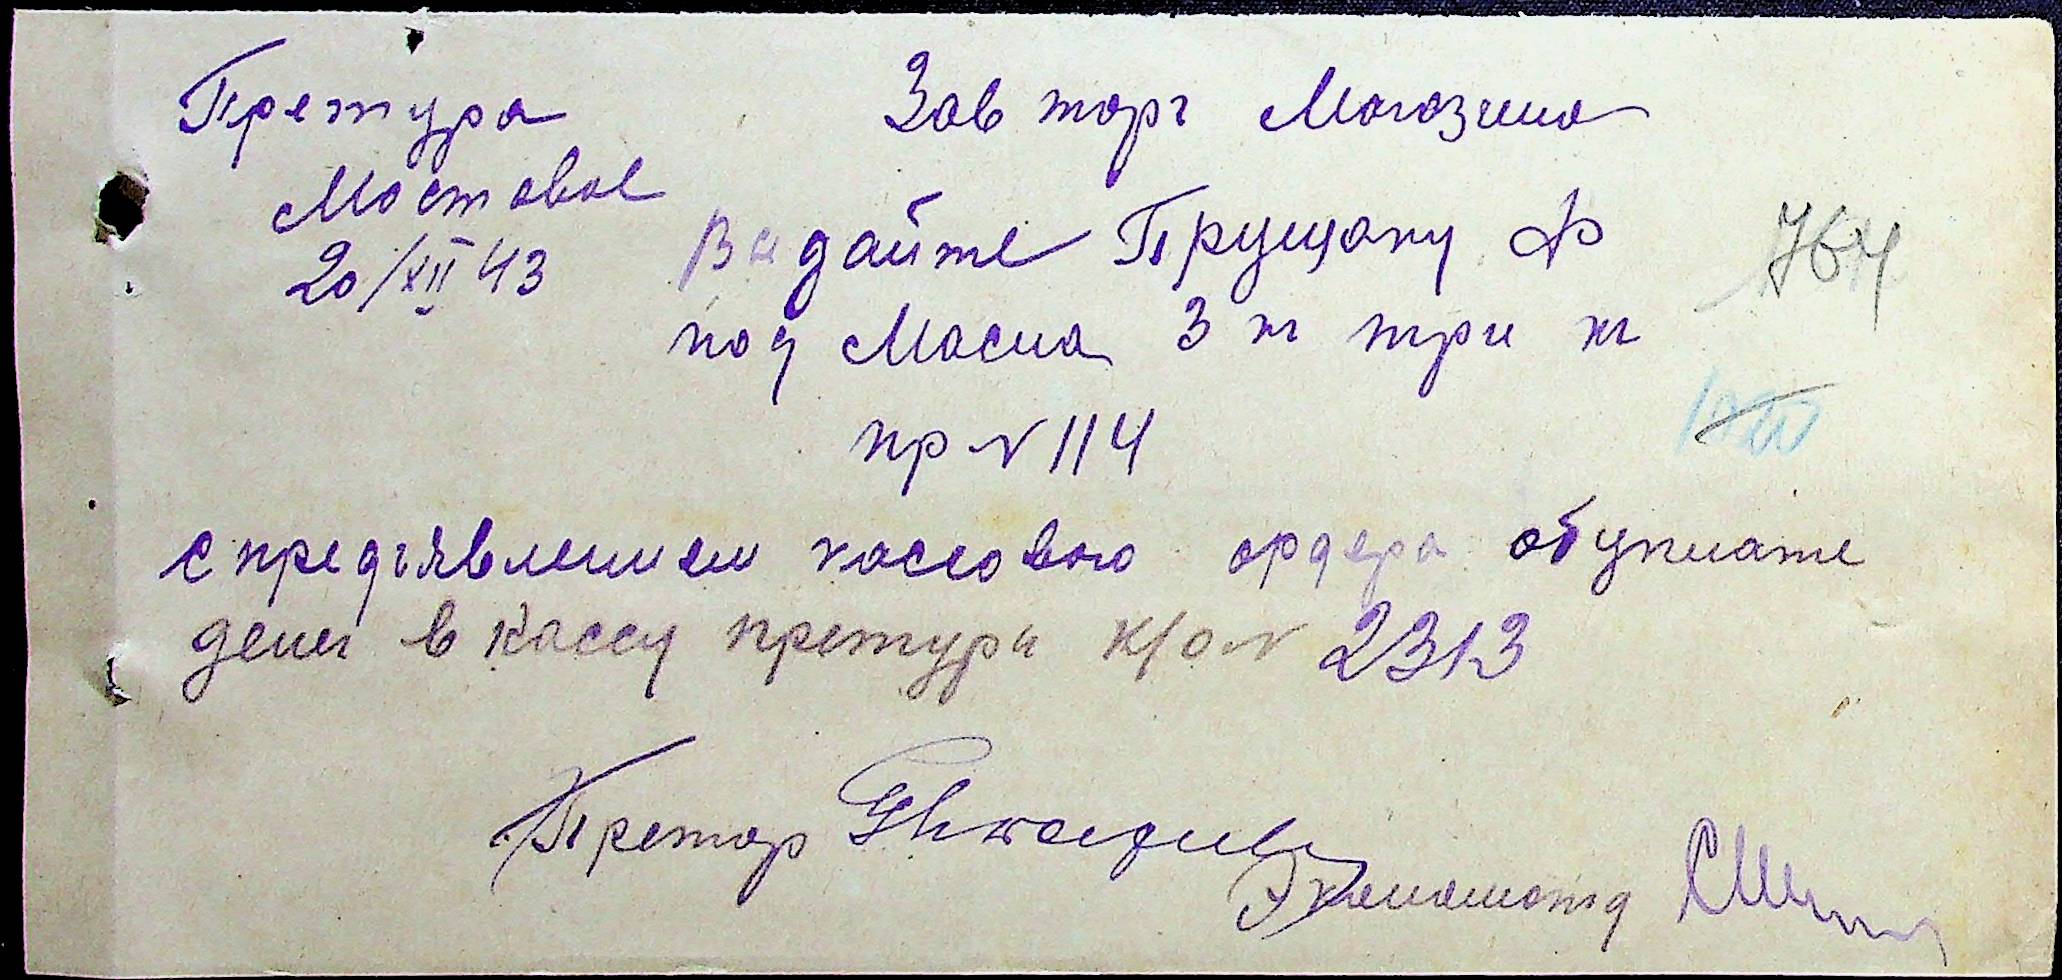 Претура
Мостовое
20/XII 43
Зав торг Магазина
Выдайте Прущаку
под Масла 3 кг три кг
764
пр № 114
с предъявлением кассового ордера об уплате
денег в кассу претуры к/о № 2313
Претор